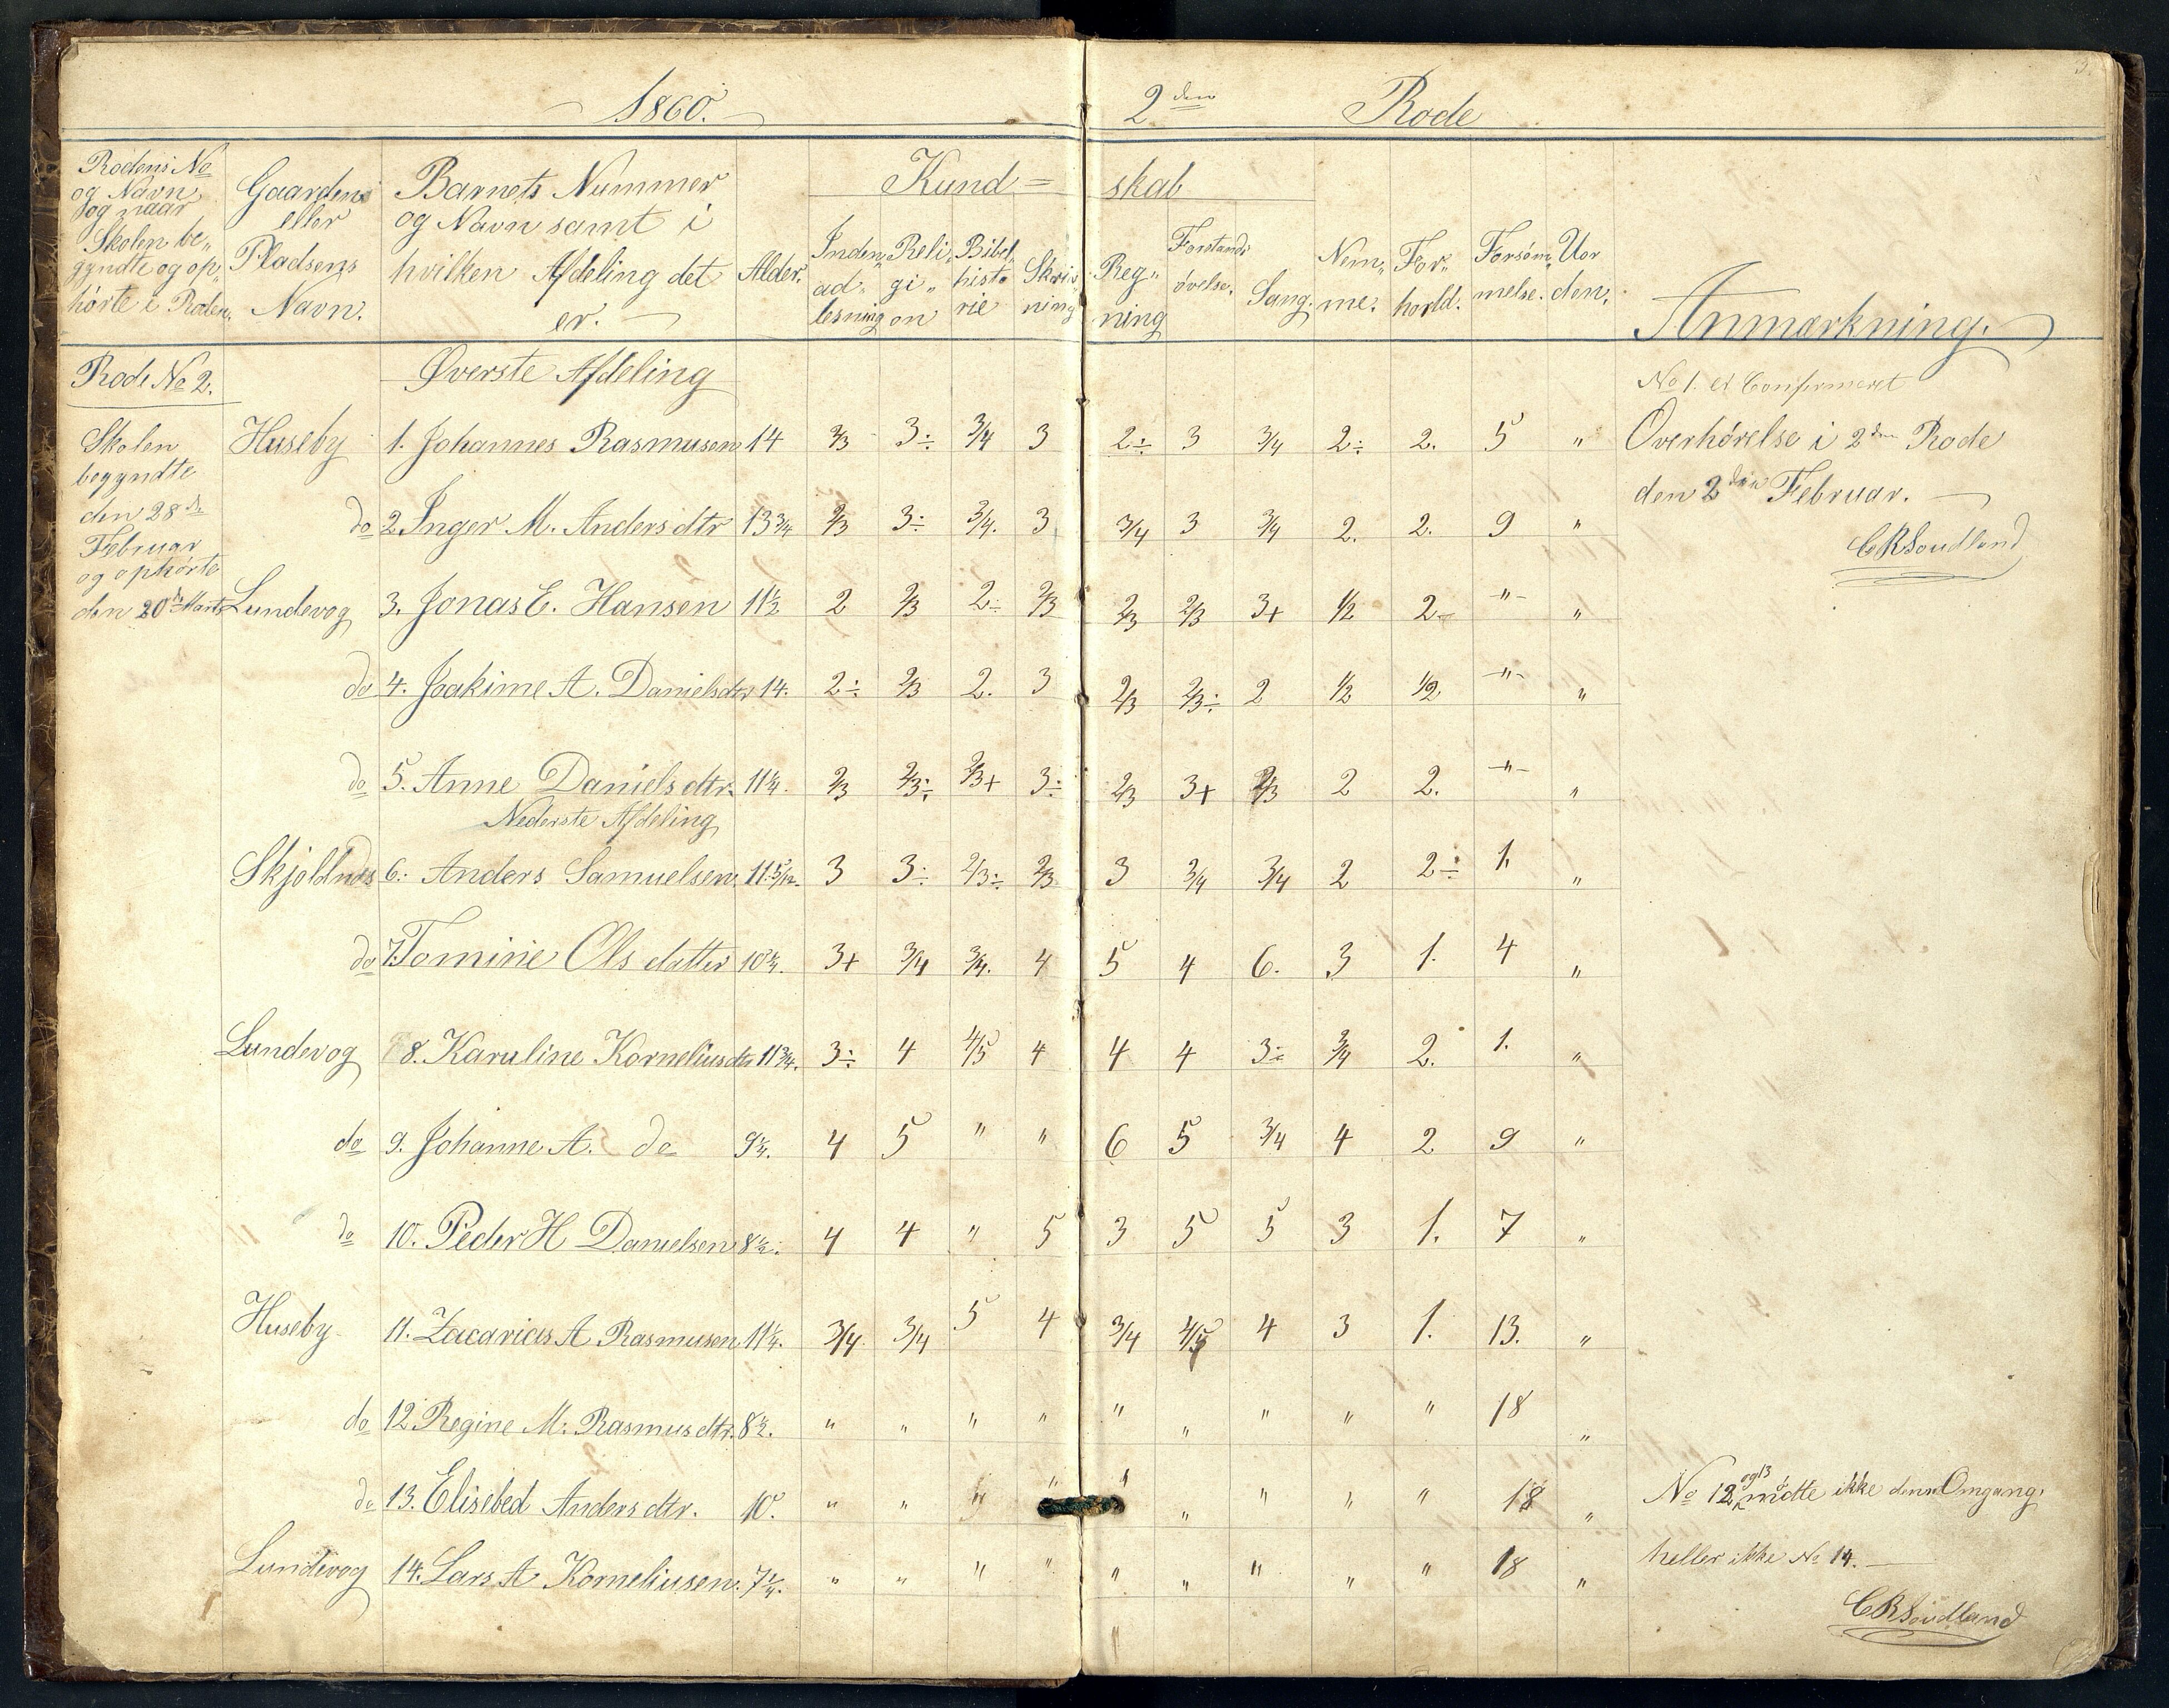 3.
1860. 2den Rode
Rodens No og Navn og naar Skolen be„ gyndte og op„ hørte i Roden.
Gaardens eller Pladsens Navn.
Barnets Nummer og Navn samt i hvilken Afdeling det er.
Alder.
Kund= skab
Inden„ ad„ læsning
Reli„ gi„ on
Bibel„ histo rie
Skriv„ ning
Reg„ ning
Forstands øvelse.
Sang.
Nem„ me.
For„ hold.
Forsøm„ melse.
Uor den.
Anmærkning.
Rode No 2. Øverste Afdeling
No 1. er Confirmeret
Skolen begyndte den 28de Februar og ophørte den 20de Marts
Huseby 1. Johannes Rasmusen 14 2/3 3÷ 3/4 3 2÷ 3 3/4 2÷ 2. 5 „ Overhørelse i 2den Rode
den 2den Februar.
do 2 Inger M. Anders dtr 13 3/4 2/3 3÷ 3/4. 3 3/4 3 3/4 2. 2. 9 „
CRSoudland
Lundevog 3. Jonas E. Hansen 11 1/2 2 2/3 2÷ 2/3 2/3 2/3 3+ 1/2 2- -„- „
do 4. Joakime A. Danielsdtr 14. 2÷ 2/3 2. 3 2/3 2/3÷ 2 1/2 1/2. -„- „
do 5. Anne Daniels dtr. 11 1/4. 2/3 2/3÷ 2/3+ 3÷ 2/3 3+ 2/3 2 2. -„- „
Nederste Afdeling
Skjoldnæs 6. Anders Samuelsen. 11 5/12. 3 3÷ 2/3÷ 2/3 3 3/4 3/4 2 2÷ 1. „
do 7. Tomine Ols datter 10 1/4. 3+ 3/4 3/4. 4 5 4 6. 3 1. 4 „
Lundevog 8. Karuline Korneliusdtr 11 3/4. 3÷ 4 4/5 4 4 4 3÷ 3/4 2. 1. „
do 9. Johanne A. do 9 1/4. 4 5 „ „ 6 5 3/4 4 2 9 „
do 10. Peder H Danielsen 8 1/2. 4 4 „ 5 3 5 5 3 1. 7 „
Huseby 11. Zacarias A Rasmusen 11 1/4. 3/4. 3/4 5 4 3/4 4/5 4 3 1. 13. „
do 12 Regine M. Rasmus dtr. 8 1/2. „ „ „ „ „ „ „ „ „ 18 „
do 13. Elisebed Anders dtr. 10. „ „ „ „ „ „ „ „ „ 18 „ No 12 og 13 mødte ikke denne Omgang.
Lundevog 14. Lars A Korneliusen. 7 1/4. „ „ „ „ „ „ „ „ „ 18 „ heller ikke No 14.
CRSoudland